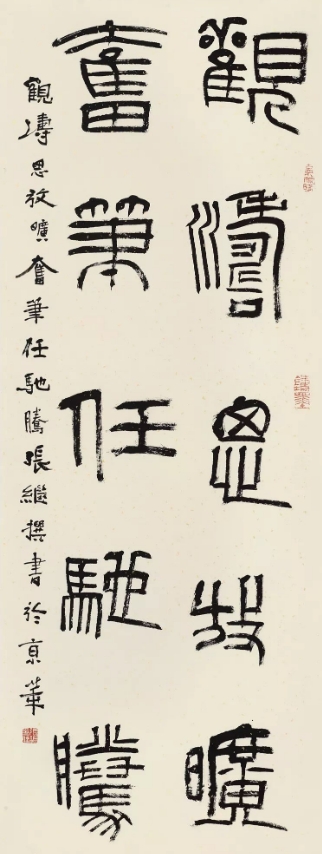 觀濤思放曠
奮筆任馳騰
觀濤思放曠奮筆任馳騰張繼撰書於京華